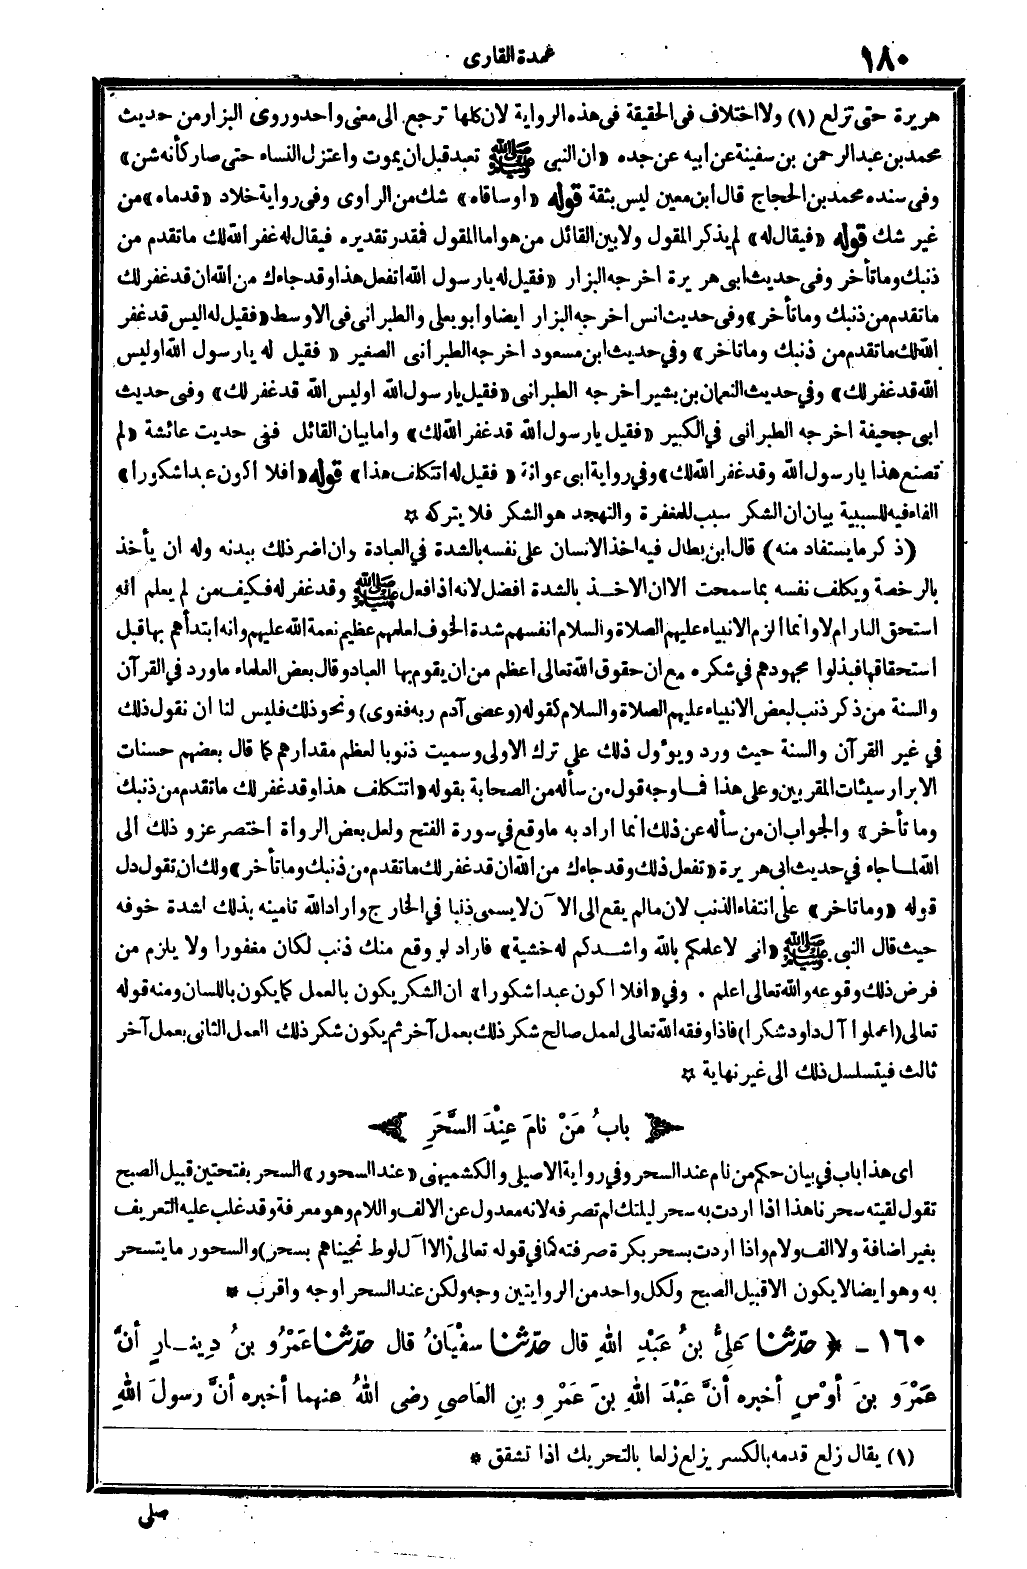 ١٨٠
عمدة القارى
هريرة حتى تزلع (١) ولا اختلاف فى الحقيقة فى هذه الرواية لان كلها ترجع الى معنى واحد وروى البزار من حديث
محمد بن عبد الرحمن بن سفينة عن ابيه عن جده «ان النبى ﷺ تعبد قبل ان يموت واعتزل النساء حتى صار كأنه شن»
وفى سنده محمد بن الحجاج قال ابن معين ليس بثقة قوله «اوساقاه» شك من الراوى وفى رواية خلاد «قدماه» من
غير شك قوله «فيقال له» لم يذكر المقول ولا بين القائل من هو اما المقول فمقدر تقديره فيقال له غفر الله لك ما تقدم من
ذنبك وما تأخر وفى حديث ابى هريرة اخرجه البزار «فقيل له يارسول الله اتفعل هذا وقد جاءك من الله ان قد غفر لك
ما تقدم من ذنبك وما تأخر» وفى حديث انس اخرجه البزار ايضا وابو يعلى والطبرانى فى الاوسط «فقيل له اليس قد غفر
الله لك ما تقدم من ذنبك وما تاخر» وفي حديث ابن مسعود اخرجه الطبرانى الصغير «فقيل له يارسول الله اوليس
الله قد غفر لك» وفي حديث النعمان بن بشير أخرجه الطبرانى «فقيل يارسول الله اوليس الله قد غفر لك» وفى حديث
ابى جحيفة اخرجه الطبرانى في الكبير «فقيل يارسول الله قد غفر الله لك» واما بيان القائل ففى حديث عائشة «لم
تصنع هذا يارسول الله وقد غفر الله لك» وفي رواية ابى عوانة «فقيل له اتتكلف هذا» قوله «افلا اكون عبدا شكورا»
الفاء فيه للسببية بيان ان الشكر سبب للمغفرة والتهجد هو الشكر فلا يتركه ✡
(ذكر ما يستفاد منه) قال ابن بطال فيه اخذ الانسان على نفسه بالشدة في العبادة وان اضر ذلك ببدنه وله ان يأخذ
بالرخصة ويكلف نفسه بما سمحت الا ان الاخذ بالشدة افضل لانه اذا فعل ﷺ وقد غفر له فكيف من لم يعلم انه
استحق النار ام لا وانما الزم الانبياء عليهم الصلاة والسلام انفسهم شدة الخوف لعلمهم عظيم نعمة الله عليهم وانه ابتدأهم بها قبل
استحقاقها فبذلوا مجهودهم في شكره مع ان حقوق الله تعالى اعظم من ان يقوم بها العباد وقال بعض العلماء ما ورد في القرآن
والسنة من ذكر ذنب لبعض الانبياء عليهم الصلاة والسلام كقوله (وعصى آدم ربه فغوى) ونحو ذلك فليس لنا ان نقول ذلك
في غير القرآن والسنة حيث ورد ويؤول ذلك على ترك الاولى وسميت ذنوبا لعظم مقدارهم كما قال بعضهم حسنات
الابرار سيئات المقربين وعلى هذا فما وجه قول من سأله من الصحابة بقوله «اتتكلف هذا وقد غفر لك ما تقدم من ذنبك
وما تأخر» والجواب ان من سأله عن ذلك انما اراد به ما وقع في سورة الفتح ولعل بعض الرواة اختصر عزو ذلك الى
الله لما جاء في حديث ابى هريرة «تفعل ذلك وقد جاءك من الله ان قد غفر لك ما تقدم من ذنبك وما تأخر» ولك ان تقول دل
قوله «وما تاخر» على انتفاء الذنب لان مالم يقع الى الآن لا يسمى ذنبا في الخارج واراد الله تامينه بذلك لشدة خوفه
حيث قال النبى ﷺ «انى لاعلمكم بالله واشدكم له خشية» فاراد لو وقع منك ذنب لكان مغفورا ولا يلزم من
فرض ذلك وقوعه والله تعالى اعلم . وفي «افلا اكون عبدا شكورا» ان الشكر يكون بالعمل كما يكون باللسان ومنه قوله
تعالى (اعملوا آل داود شكرا) فاذا وفقه الله تعالى لعمل صالح شكر ذلك بعمل آخر ثم يكون شكر ذلك العمل الثانى بعمل آخر
ثالث فيتسلسل ذلك الى غير نهاية ✡
بابُ مَنْ نامَ عِنْدَ السَّحَرِ
اى هذا باب في بيان حكم من نام عند السحر وفي رواية الاصيلى والكشميهنى «عند السحور» السحر بفتحتين قبيل الصبح
تقول لقيته سحرنا هذا اذا اردت به سحر ليلتك لم تصرفه لانه معدول عن الالف واللام وهو معرفة وقد غلب عليه التعريف
بغير اضافة ولا الف ولام واذا اردت بسحر بكرة صرفته كما في قوله تعالى (الا آل لوط نجيناهم بسحر) والسحور ما يتسحر
به وهو ايضا لا يكون الا قبيل الصبح ولكل واحد من الروايتين وجه ولكن عند السحر اوجه واقرب *
١٦٠ ـ ﴿ حدّثنا عَلِيُّ بنُ عَبْدِ اللهِ قال حدّثنا سفْيَانُ قال حدّثنا عَمْرُو بنُ دِينـارٍ أنَّ
عَمْرَو بنَ أوْسٍ أخبره أنَّ عَبْدَ اللهِ بنَ عَمْرِو بنِ العَاصِى رضى اللهُ عنهما أخبره أنَّ رسولَ اللهِ
(١) يقال زلع قدمه بالكسر يزلع زلعا بالتحريك اذا تشقق *
صلى